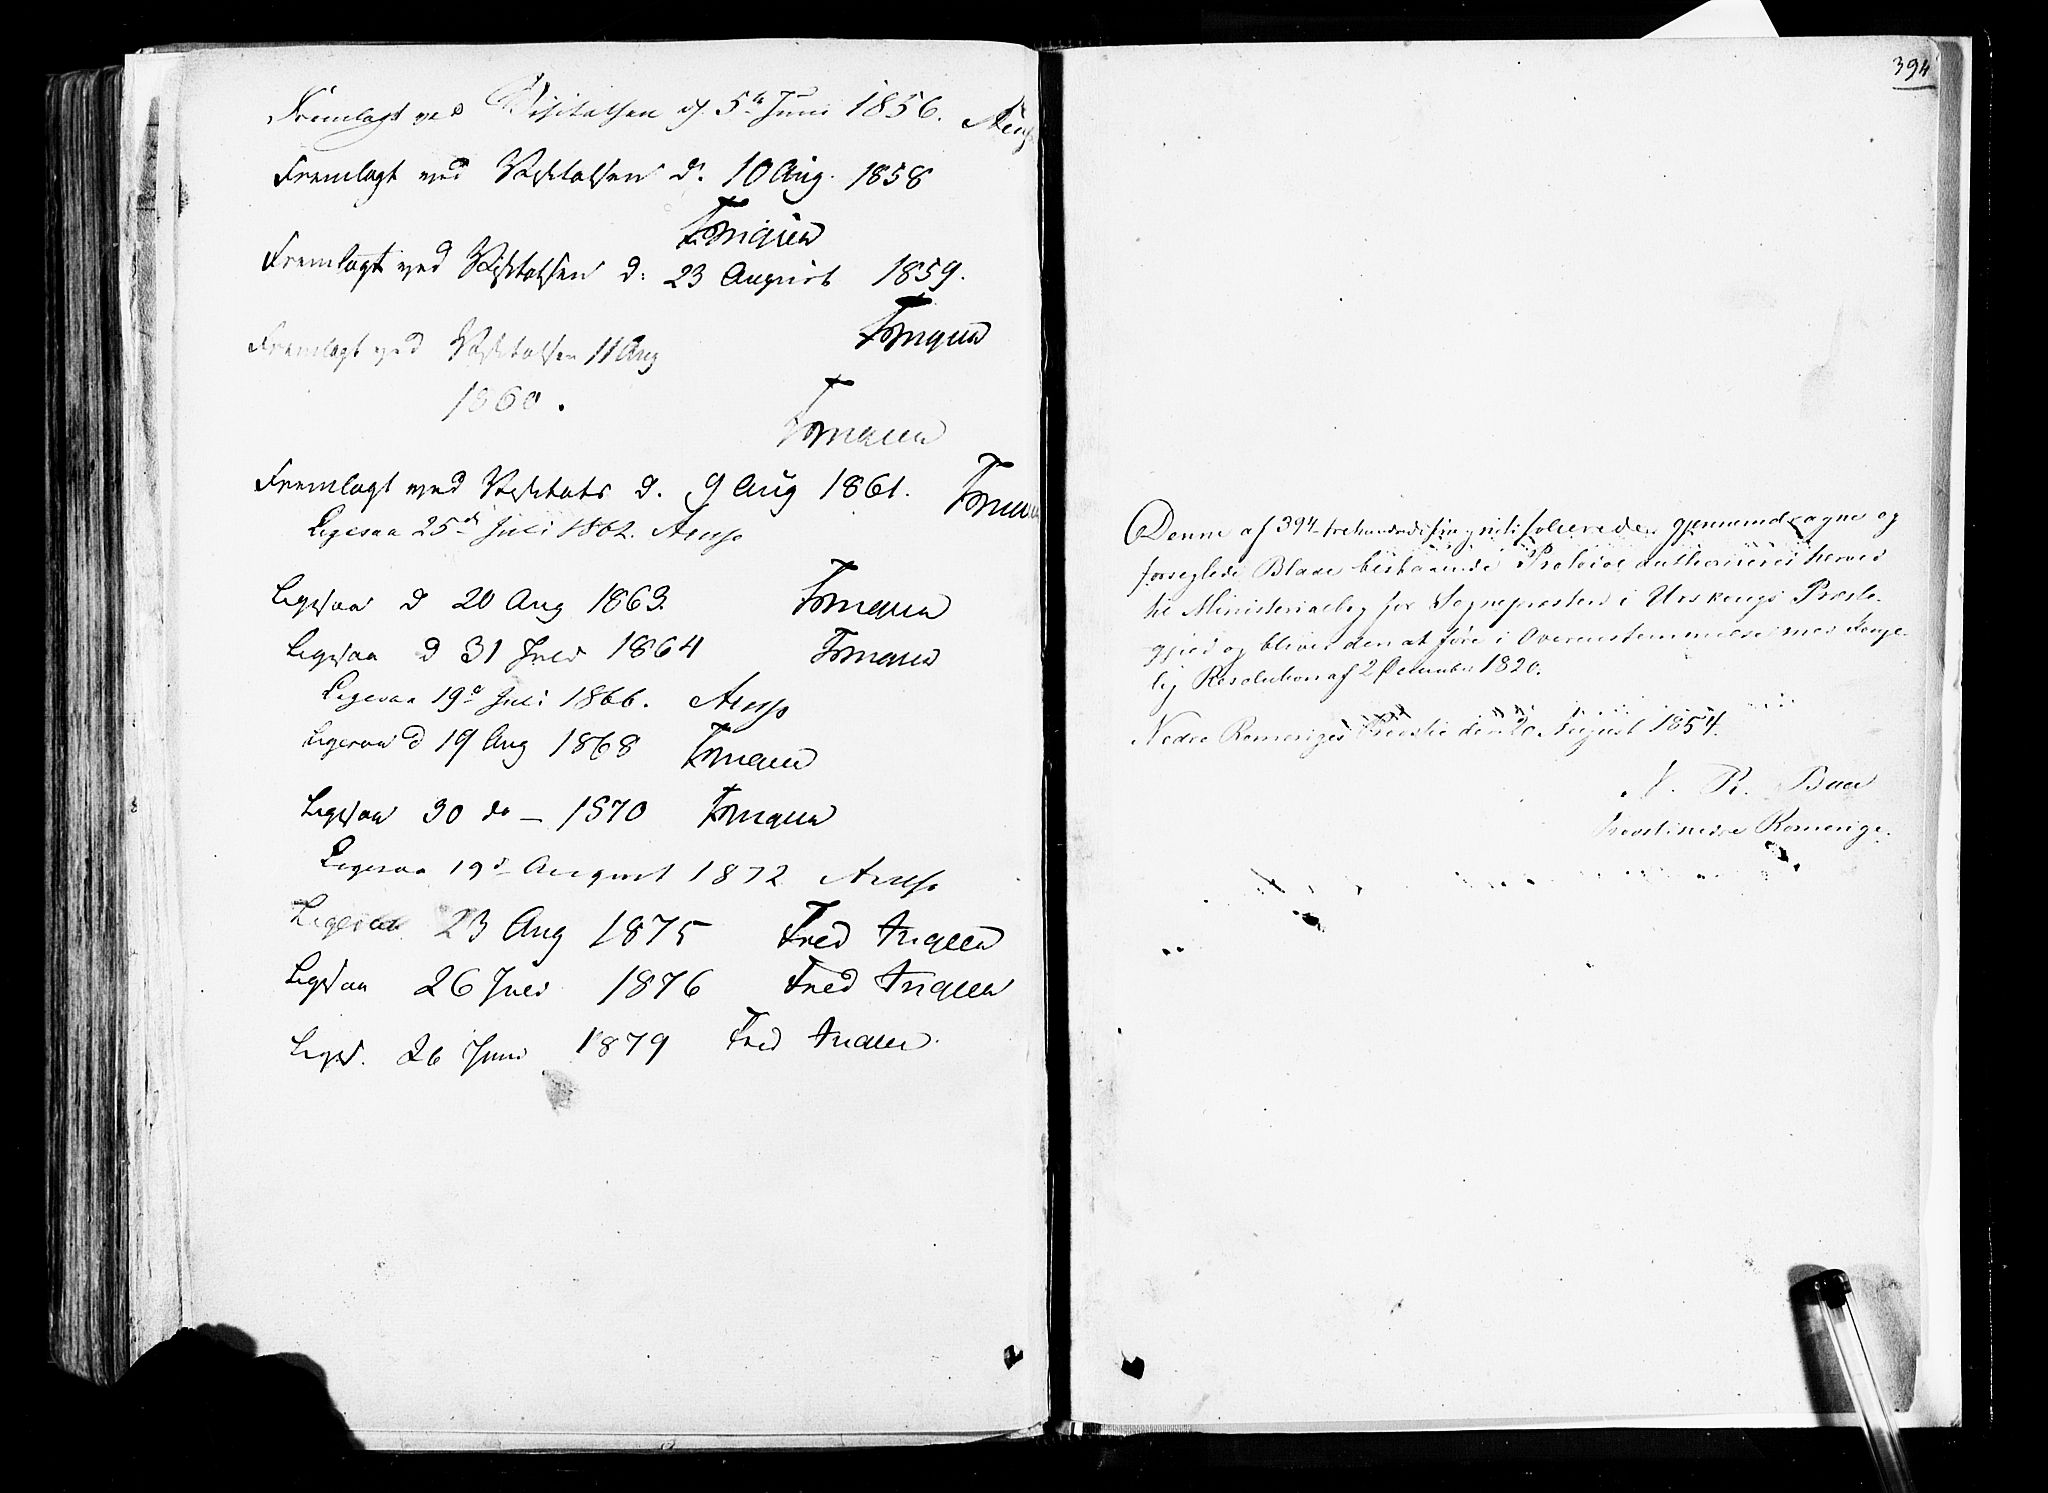 Fremlagt ved Visitatsen d. 5te Juni 1856. Arup
Fremlagt ved Visitatsen d. 10 Aug. 1858
Fremlagt ved Visitatsen d. 23 August 1859.
Fremlagt ved Visitatsen 11 Aug
1860.
Fremlagt ved Visitats d. 9 Aug 1861.
Ligesaa 25de Juli 1862. Arup
Ligesaa d 20 Aug 1863.
Ligesaa d 31 Juli 1864
Ligesaa 19de Juli 1866. Arup
Ligesaa d 19 Aug 1868
Ligesaa 30 do – 1870
Ligesaa 19de August 1872 Arup
Ligesaa 23 Aug 1875 Fred
Ligesaa 26 Juli 1876 Fred
Liges. 26 Juni 1879 Fred
394
Denne af 394 trehundrede fire og niti folierede, gjennemdragne og
forseglede Blade bestaaende Protocol authoriseres herved
til Ministerialbog for Sognepræsten i Urskougs Præste-
gjeld og bliver den at føre i Overensstemmelse med Konge-
lig Resolution af 2 December 1820.
Nedre Romeriges Provstie den 20 August 1854.
N. R. Bull
Provst i nedre Romerige.